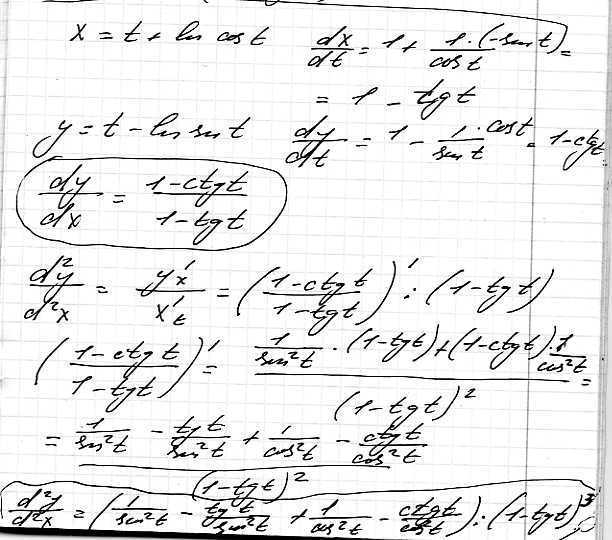 x = t + ln cos t   dx/dt = 1 + 1·(-sin t)/cos t =
= 1 - tg t
y = t - ln sin t   dy/dt = 1 - 1/sin t · cos t = 1 - ctg t
dy/dx = (1 - ctg t)/(1 - tg t)
d²y/d²x = y'x/x't = ((1 - ctg t)/(1 - tg t))' : (1 - tg t)
((1 - ctg t)/(1 - tg t))' = (1/sin²t · (1 - tg t) + (1 - ctg t) · 1/cos²t)/(1 - tg t)² =
= (1/sin²t - tg t/sin²t + 1/cos²t - ctg t/cos²t)/(1 - tg t)²
d²y/d²x = (1/sin²t - tg t/sin²t + 1/cos²t - ctg t/cos²t) : (1 - tg t)³